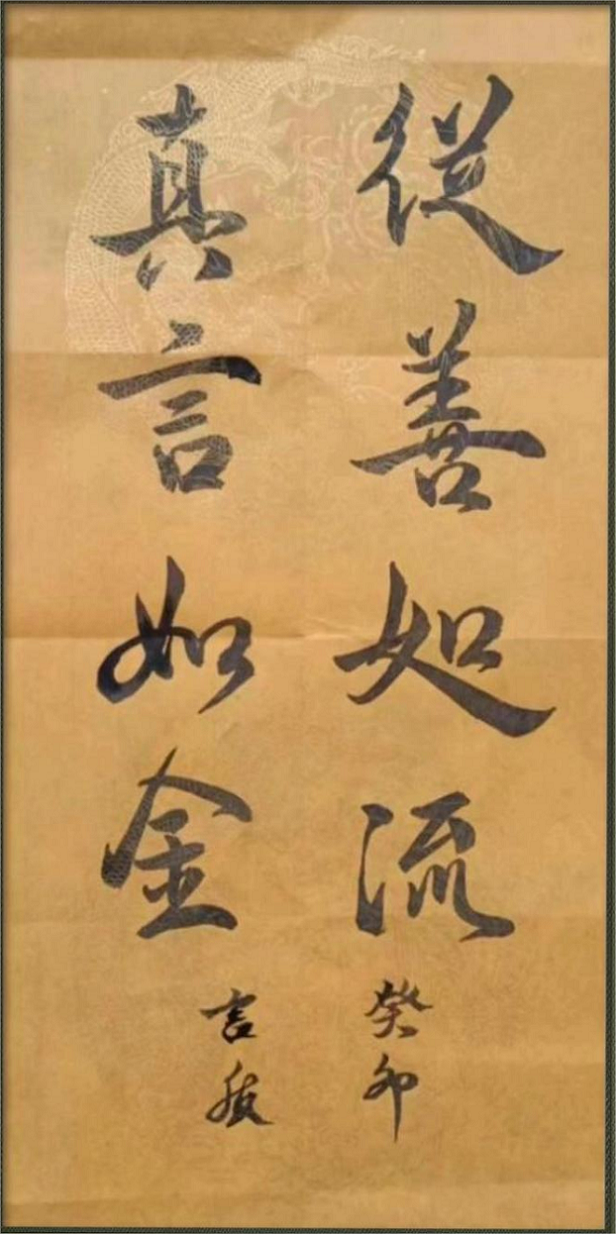 從善如流
癸卯
真言如金
言